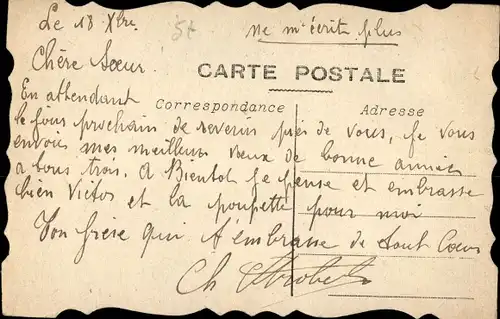 Le 18 Xbre
ne m'écrit plus
Chère Sœur.
CARTE POSTALE
En attendant
Correspondance
Adresse
le jour prochain de revenir près de vous, je vous
envois mes meilleurs vœux de bonne année
a tous trois. A Bientôt je pense et embrasse
bien Victor et la poupette pour moi
Ton frère qui t'embrasse de tout Cœur
Ch